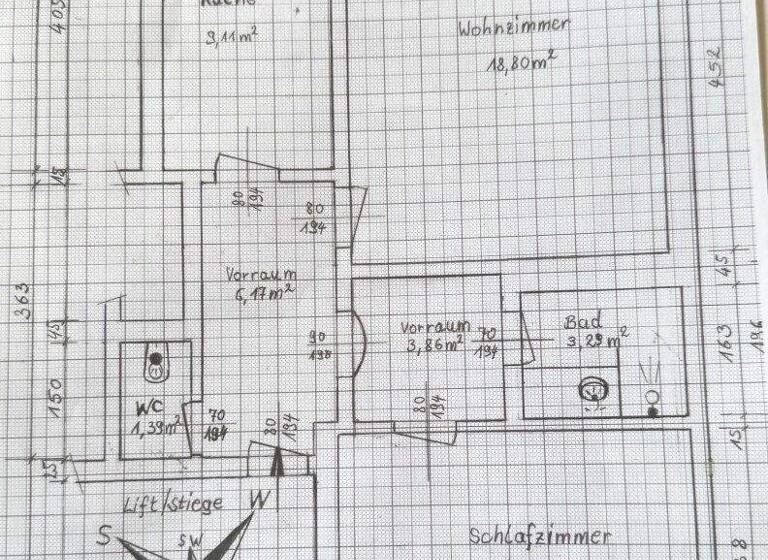 Küche
9,11m²
Wohnzimmer
18,80m²
405
452
15
80
194
80
194
Vorraum
6,17m²
363
45
45
90
198
Vorraum
3,86m²
70
194
Bad
3,29m²
163
196
150
WC
1,39m²
70
194
80
194
80
194
15
15
Lift/stiege
W
S
SW
Schlafzimmer
8